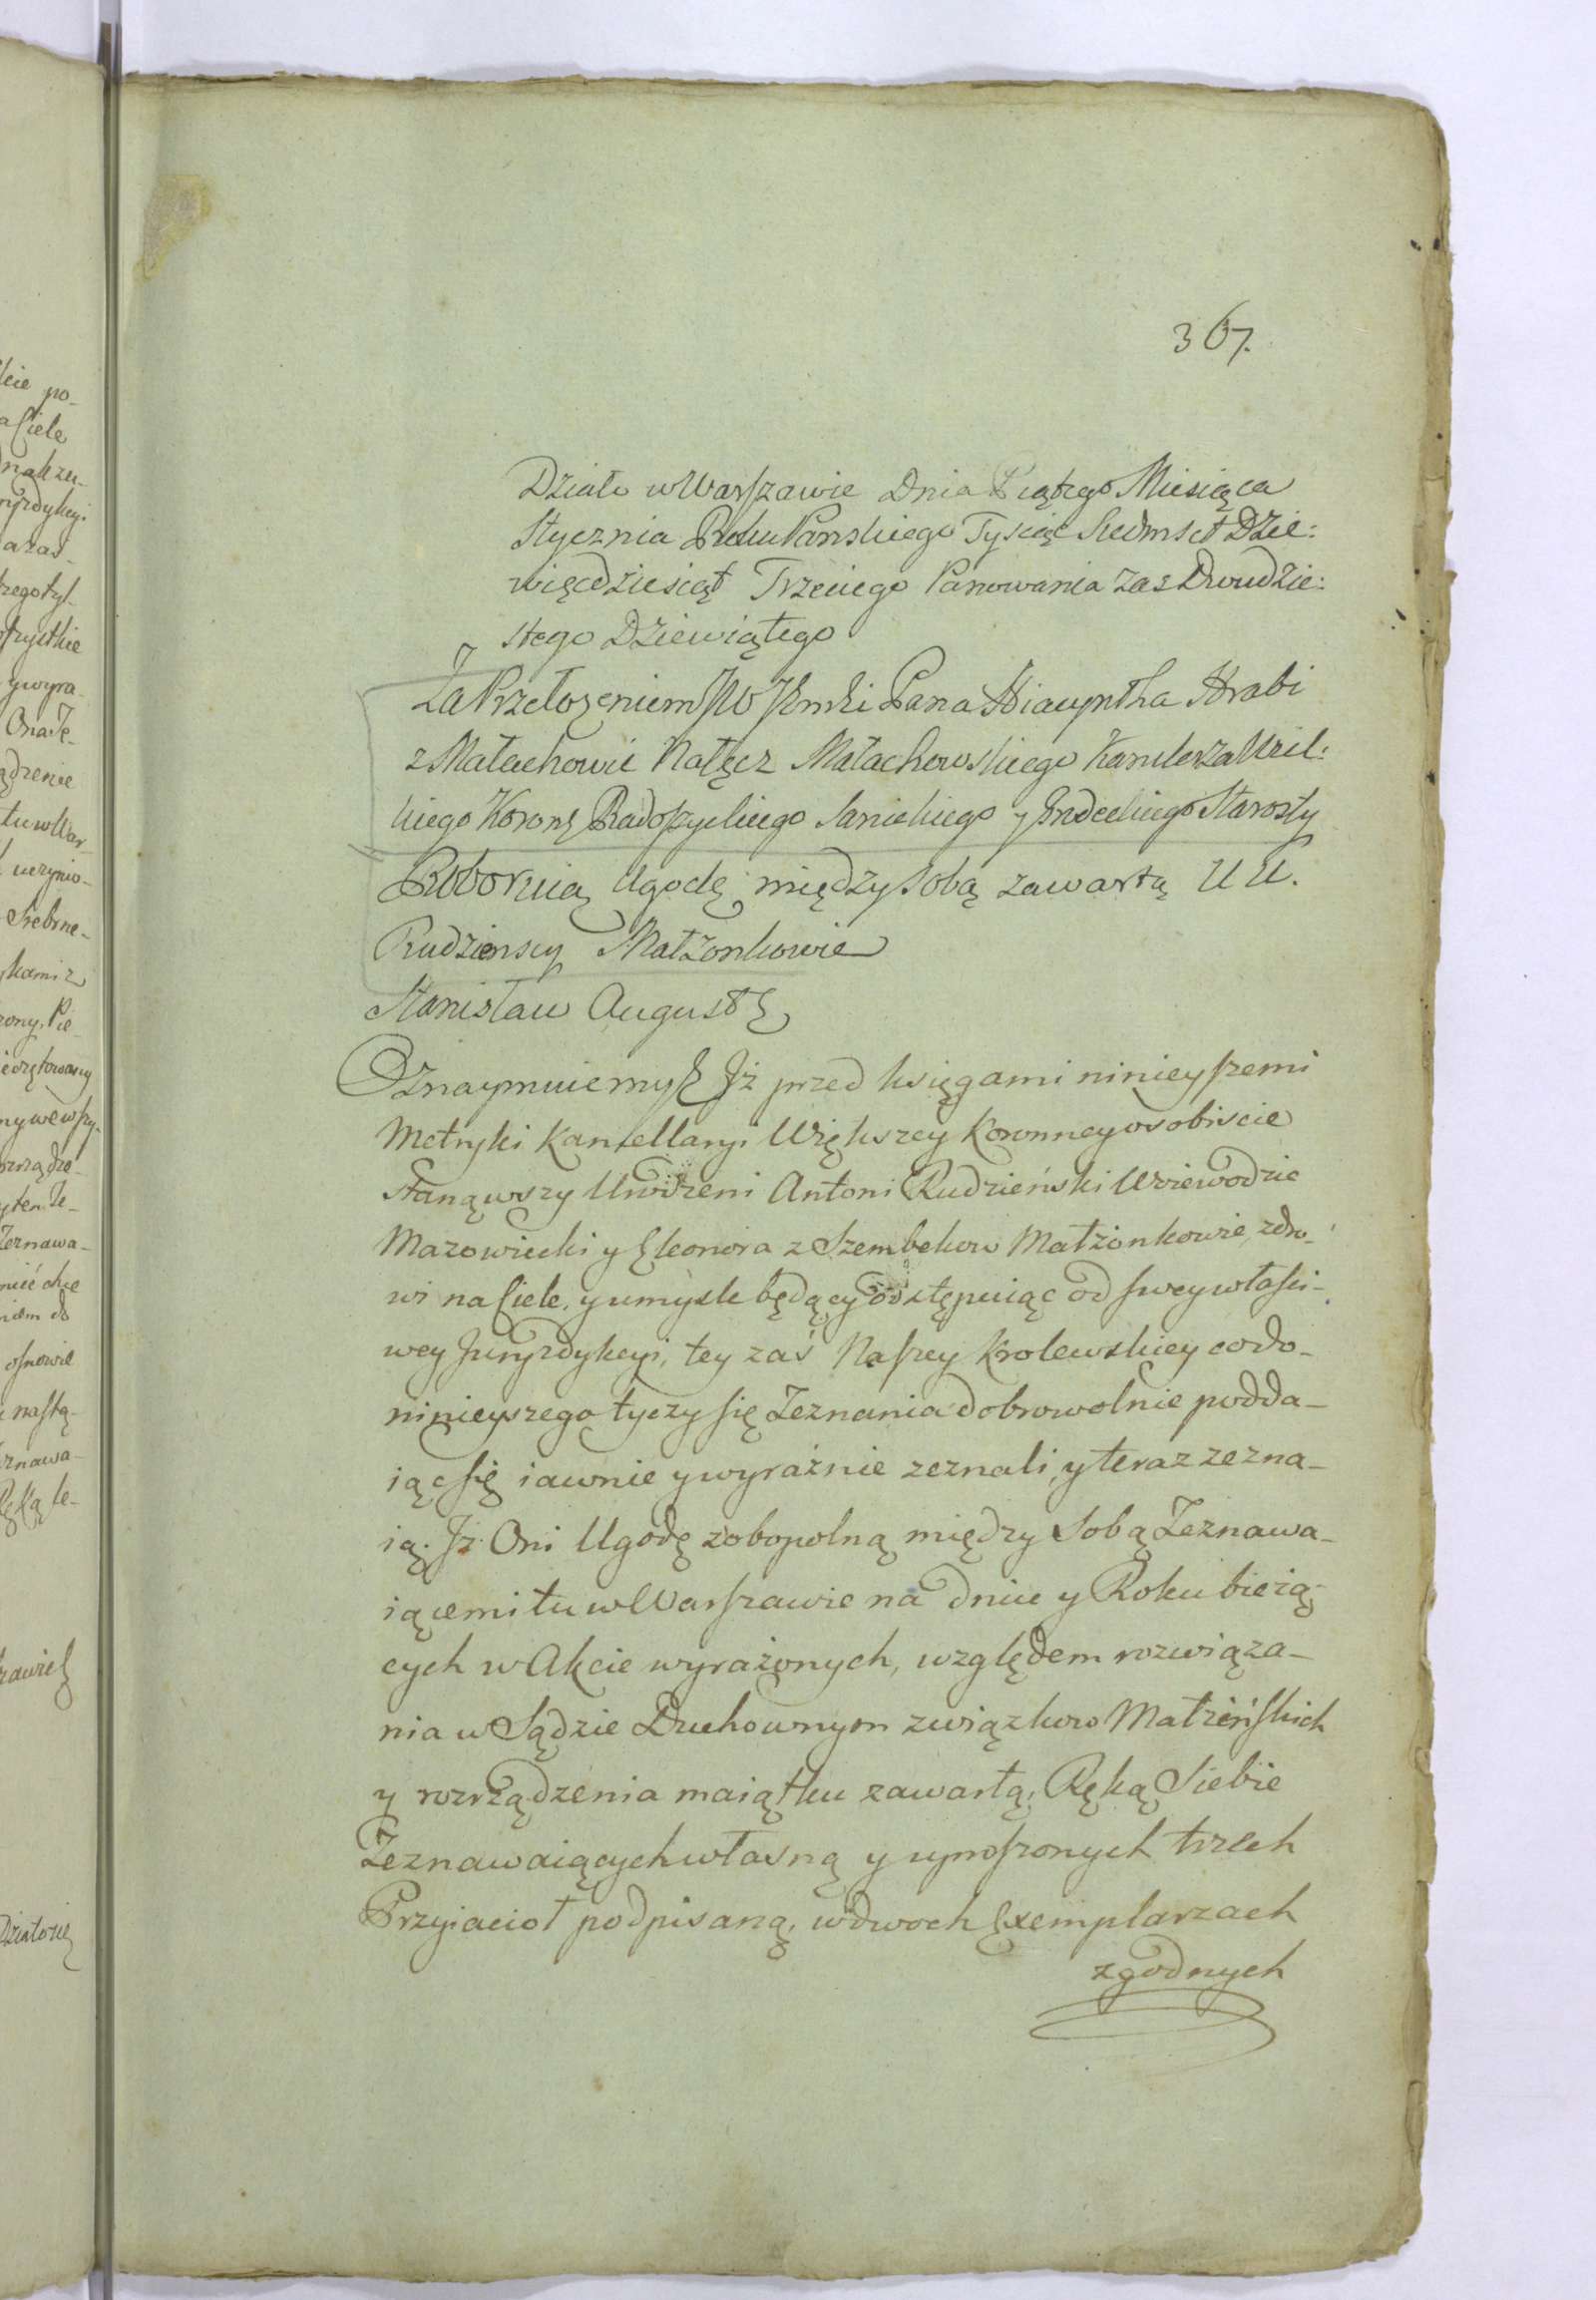 ście po-
a Ciele
nak ze-
yzdykcyi
aras-
rzego tyl-
szystkie
y wyra-
Ona Te-
ądzenie
tu w War-
uczynio-
Srebrne-
kami z
rony, Pie
ieczętowany
ny we wszy-
ozrządze-
ten Te-
Zeznawa-
nieć chce
niem do
osnowie
nastą-
znawa-
Ręką te-
367.
Działo w Warszawie Dnia Piątego Miesiąca
Stycznia Roku Panskiego Tysiąc Siedmset Dzie:
więcdziesiąt Trzeciego Panowania zas Dwudzie:
stego Dziewiątego
Za Przełozeniem JW Jmci Pana Hiacyntha Hrabi
z Małachowic Nałęcz Małachowskiego Kanclerza Wiel:
kiego Koronę Radoszyckiego Sanickiego y Grodeckiego Starosty
Roboruią Ugodę między sobą zawartą UU.
Rudzienscy Małzonkowie
Stanisław August &
Oznaymuiemy & Jż przed księgami ninieyszemi
Metryki Kancellaryi Większey Koronney osobiscie
stanąwszy Urodzeni Antoni Rudzieński Woiewodzic
Mazowiecki y Eleonora z Szembekow Małżonkowie, zdro-
wi na Ciele, y umysle będący odstępuiąc od swey właści-
wey Juryzdykcyi, tey zaś Naszey Krolewskiey co do-
ninieyszego tyczy się Zeznania dobrowolnie podda-
iąc się iawnie y wyraźnie zeznali, y teraz zezna-
ią. Jż Oni Ugodę zobopolną między Sobą Zeznawa-
iącemi tu w Warszawie na dniu y Roku bieżą-
cych w Akcie wyrażonych, względem rozwiąza-
nia w Sądzie Duchownym związkow Małżeńskich
y rozrządzenia maiątku zawartą, Ręką Siebie
Zeznawaiących własną y uproszonych trzech
Przyiacioł podpisaną, w dwoch Exemplarzach
zgodnych